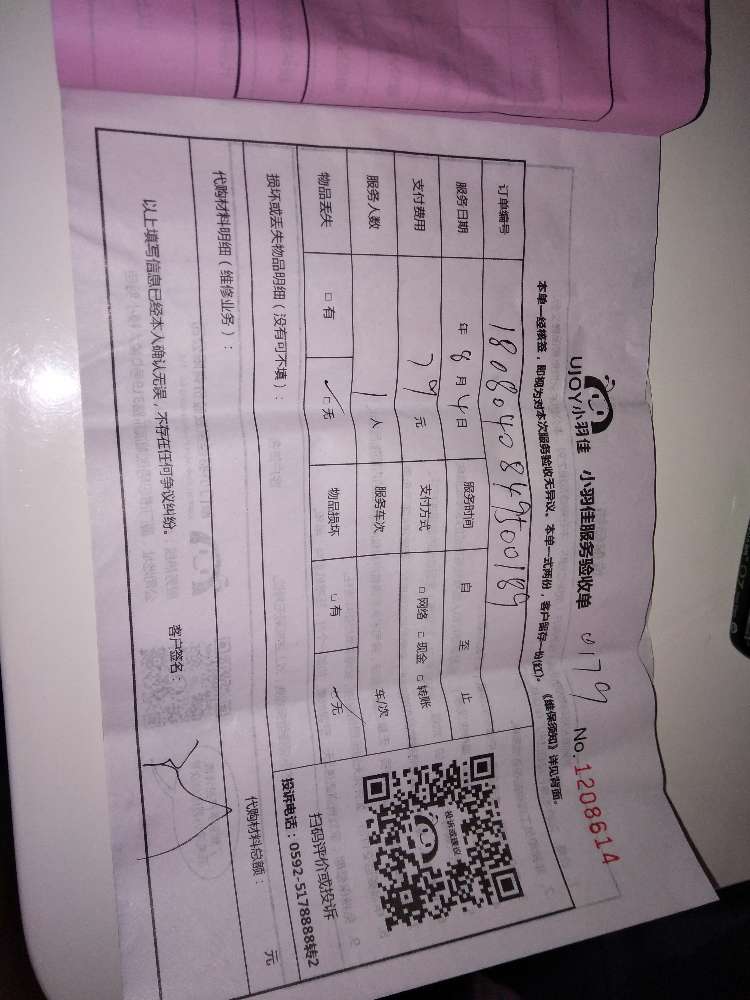 UJOY小羽佳 小羽佳服务验收单 0179 No.1208614
本单一经核签，即视为对本次服务验收无异议、本单一式两份，客户留存一份(红)。《维保须知》详见背面。
订单编号 1808040849500189
服务日期 年 8 月 4 日 服务时间 自 至 止
支付费用 79 元 支付方式 □ 网络 □ 现金 □ 转账
服务人数 1 人 服务车次 车/次
物品丢失 □ 有 ✓□ 无 物品损坏 □ 有 ✓无
投诉或建议
扫码评价或投诉
投诉电话：0592-5178888转2
损坏或丢失物品明细（没有可不填）：
代购材料明细（维修业务）： 代购材料总额： 元
以上填写信息已经本人确认无误，不存在任何争议纠纷。 客户签名：